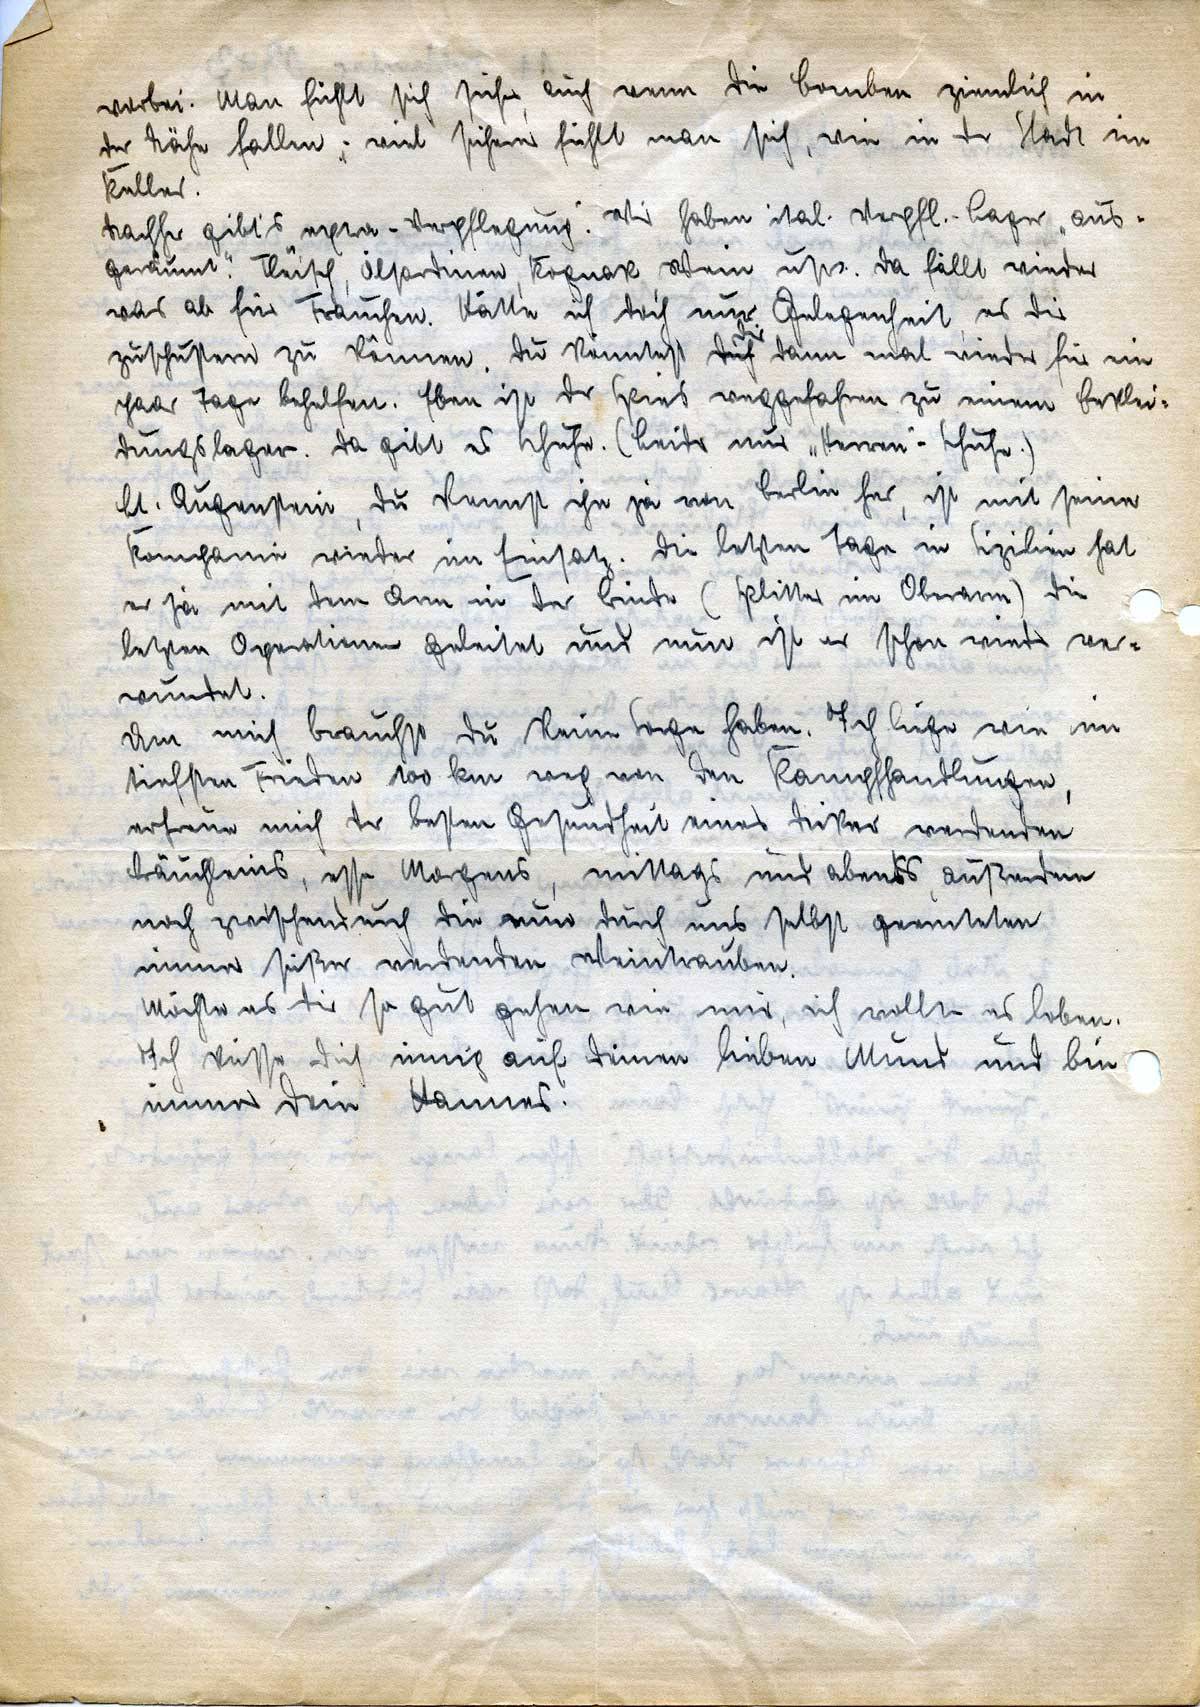 vorbei. Man fühlt sich sicher, auch wenn die Bomben ziemlich in
der Nähe fallen; viel sicherer fühlt man sich, wie in der Stadt im
Keller.
Nachher gibt's "extra-Verpflegung". Wir haben ital. Verpfl.-Lager „aus-
geräumt". Fleisch, Ölsardinen, Kognak, Wein usw. Da fällt wieder
was ab für Frauchen. Hätte ich doch nur Gelegenheit, es Dir
zuschustern zu können. Du könntest Dir dann mal wieder für ein
paar Tage behelfen. Eben ist der Spies weggefahren zu einem Beklei-
dungslager. Da gibt es Schuhe. (Leider nur „Herren"-Schuhe.)
Lt. Augenstein, Du kennst ihn ja von Berlin her, ist mit seiner
Kompanie wieder im Einsatz. Die letzten Tage in Sizilien hat
er ja mit dem Arm in der Binde (Splitter im Oberarm) die
letzten Operationen geleitet und nun ist er schon wieder ver-
wundet.
Um mich brauchst Du keine Sorge haben. Ich liege wie im
tiefsten Frieden 100 km weg von den Kampfhandlungen,
erfreue mich der besten Gesundheit eines dicker werdenden
Bäuchleins, esse Morgens, mittags und abends, außerdem
noch zwischendurch die nun durch uns selbst geernteten
immer süßer werdenden Weintrauben.
Möchte es Dir so gut gehen wie mir, ich wollte es loben.
Ich küsse Dich innig auf Deinen lieben Mund und bin
immer Dein Hannes.